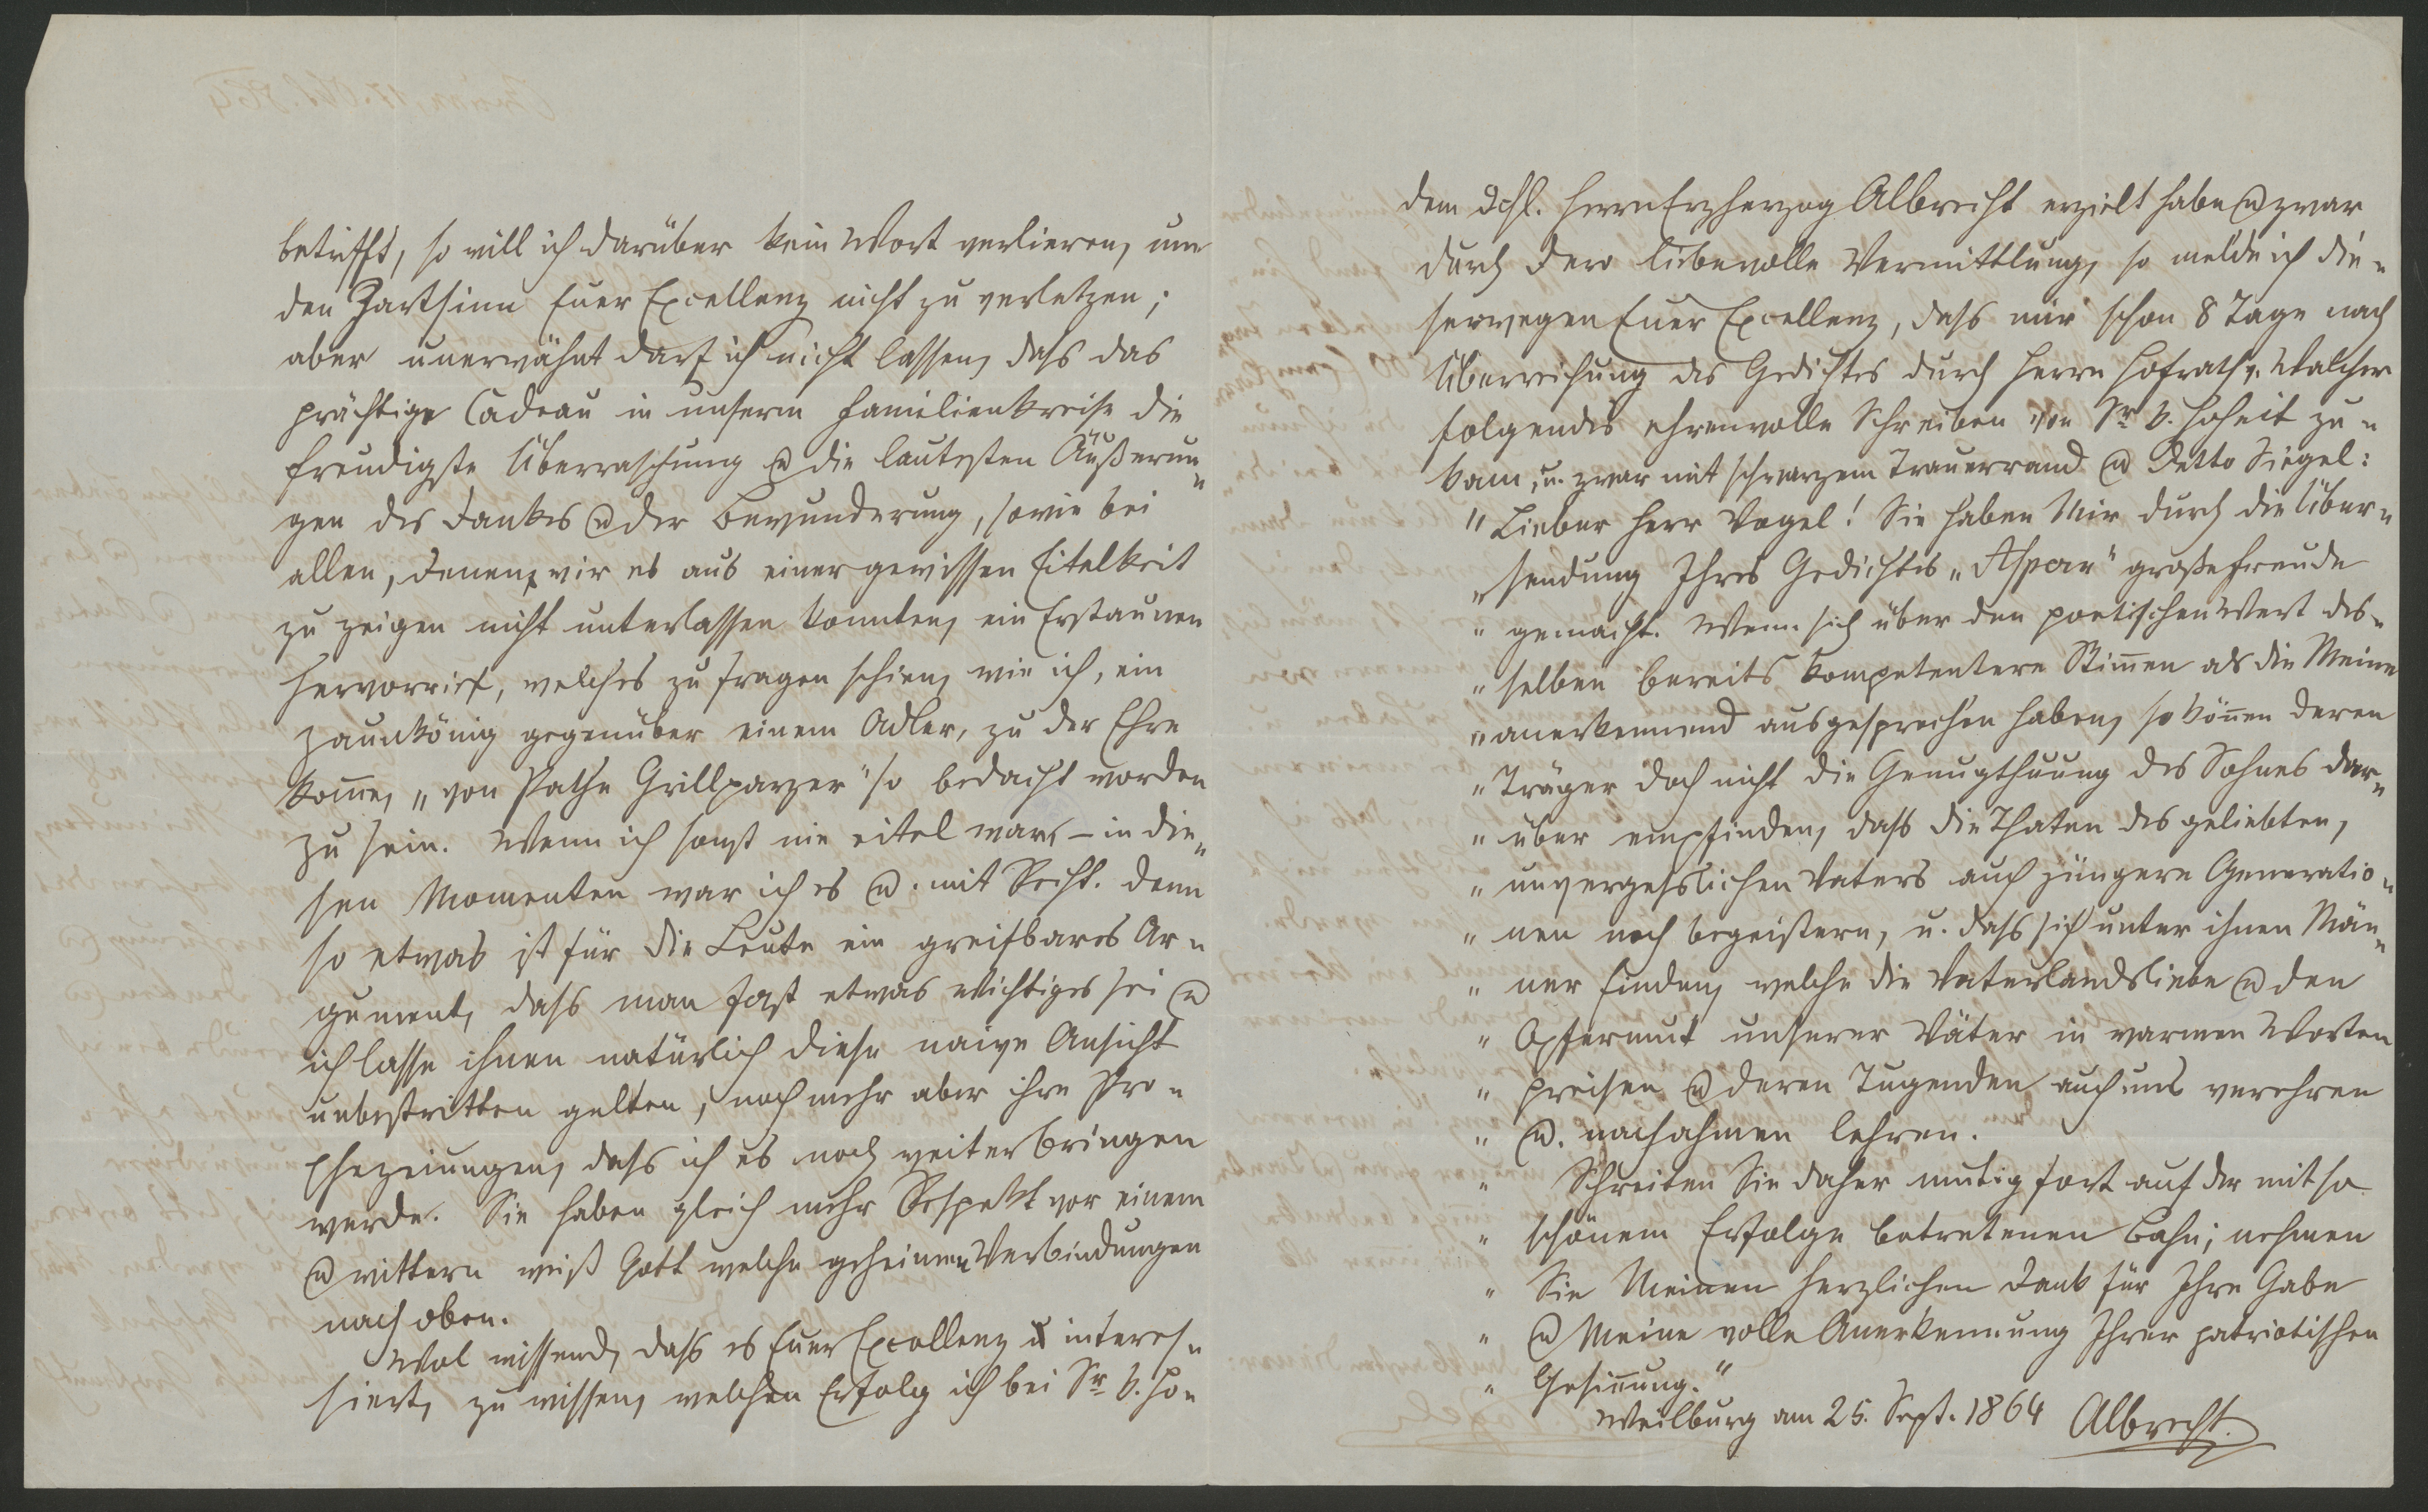 betrifft, so will ich darüber kein Wort verlieren, um
den Zartsinn Euer Excellenz nicht zu verletzen;
aber unerwähnt darf ich nicht lassen, dass das
prächtige Cadeau in unserm Familienkreise die
freudigste Überraschung u die lautesten Äußerun-
gen des Dankes u der Bewunderung, sowie bei
allen, denen wir es aus einer gewissen Eitelkeit
zu zeigen nicht unterlassen konnten, ein Erstaunen
hervorrief, welches zu fragen schien, wie ich, ein
Zaunkönig gegenüber einem Adler, zu der Ehre
kom̄e, „von Pathe Grillparzer" so bedacht worden
zu sein. Wenn ich sonst nie eitel war, – in die-
sen Momenten war ich es u. mit Recht. Denn
so etwas ist für die Leute ein greifbares Ar-
gument, dass man fast etwas Wichtiges sei u
ich lasse ihnen natürlich diese naive Ansicht
unbestritten gelten, noch mehr aber ihre Pro-
phezeiungen, dass ich es noch weiter bringen
werde. Sie haben gleich mehr Respekt vor einem
u wittern weiß Gott welche geheimen Verbindungen
nach oben.
Wol wissend, dass es Euer Excellenz interes-
siert, zu wissen, welchen Erfolg ich bei Sr k. Ho-
dem dchl. Herrn Erzherzog Albrecht erzielt habe u zwar
durch Dero liebevolle Vermittlung, so melde ich die-
serwegen Euer Excellenz, dass mir schon 8 Tage nach
Überreichung des Gedichtes durch Herrn Hofrath v. Walcher
folgendes ehrenvolle Schreiben von Sr k. Hoheit zu-
kam, u. zwar mit schwarzem Trauerrand u detto Siegel:
"Lieber Herr Vogel! Sie haben Mir durch die Über-
„sendung Ihres Gedichtes „Aspern" große Freude
„gemacht. Wenn sich über den poetischen Wert des-
„selben bereits kompetentere Stim̄en als die Meine
„anerkennend ausgesprochen haben, so kön̄en deren
„Träger doch nicht die Genugthuung des Sohnes dar-
„über empfinden, dass die Thaten des geliebten,
„unvergesslichen Vaters auch jüngere Generatio-
„nen noch begeistern, u. dass sich unter ihnen Män-
„ner finden, welche die Vaterlandsliebe u den
„Opfermut unserer Väter in warmen Worten
„preisen u deren Tugenden auch uns verehren
„u. nachahmen lehren.
„Schreiten Sie daher mutig fort auf der mit so
„schönem Erfolge betretenen Bahn; nehmen
„Sie Meinen herzlichen Dank für Ihre Gabe
„u Meine volle Anerkennung Ihrer patriotischen
„Gesin̄ung."
Weilburg am 25. Sept. 1864 Albrecht.